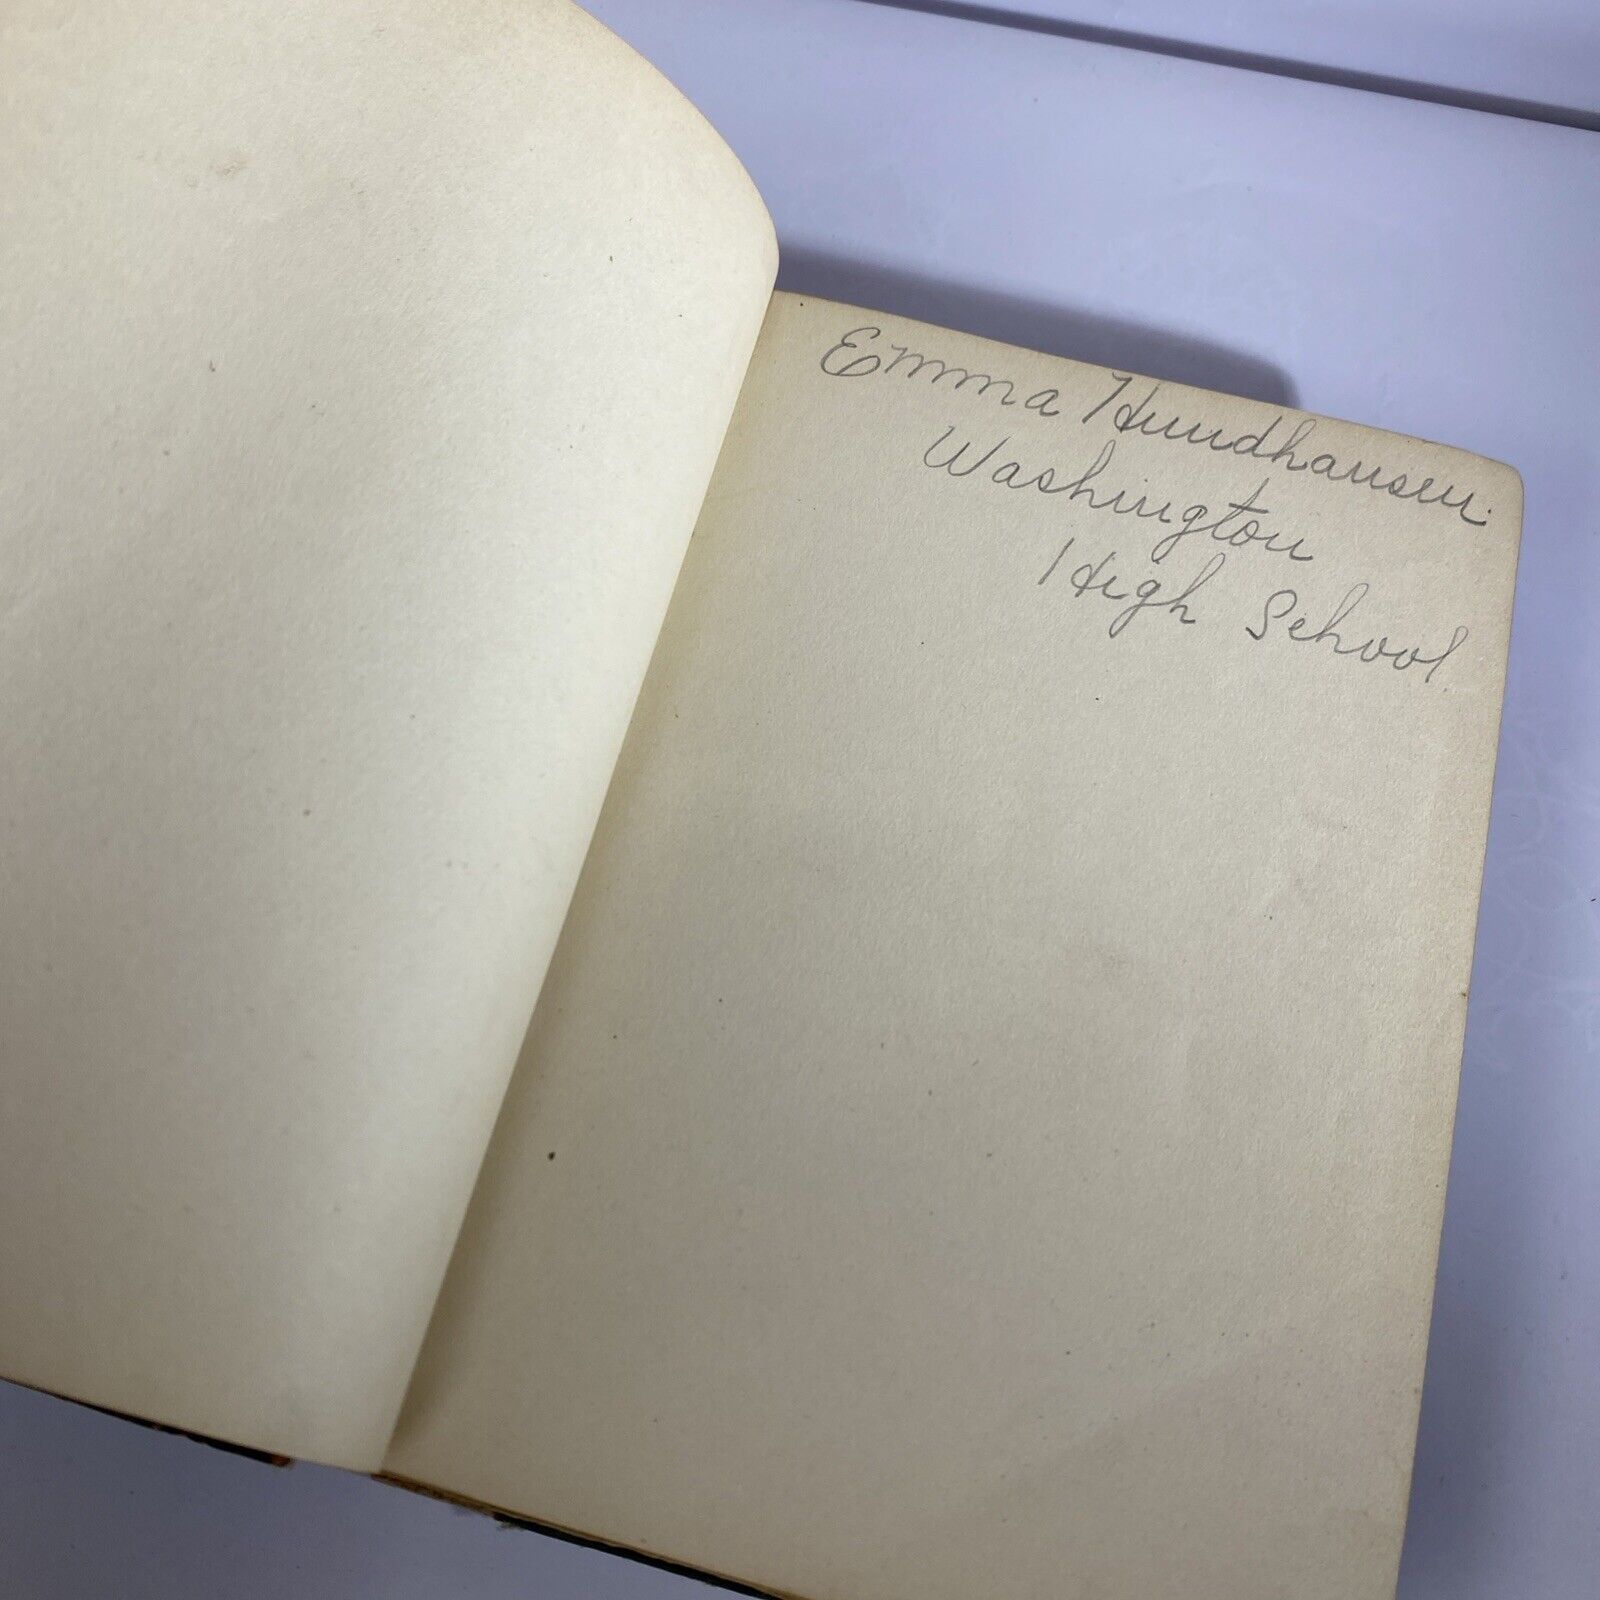 Emma Hundhausen.
Washington
High School